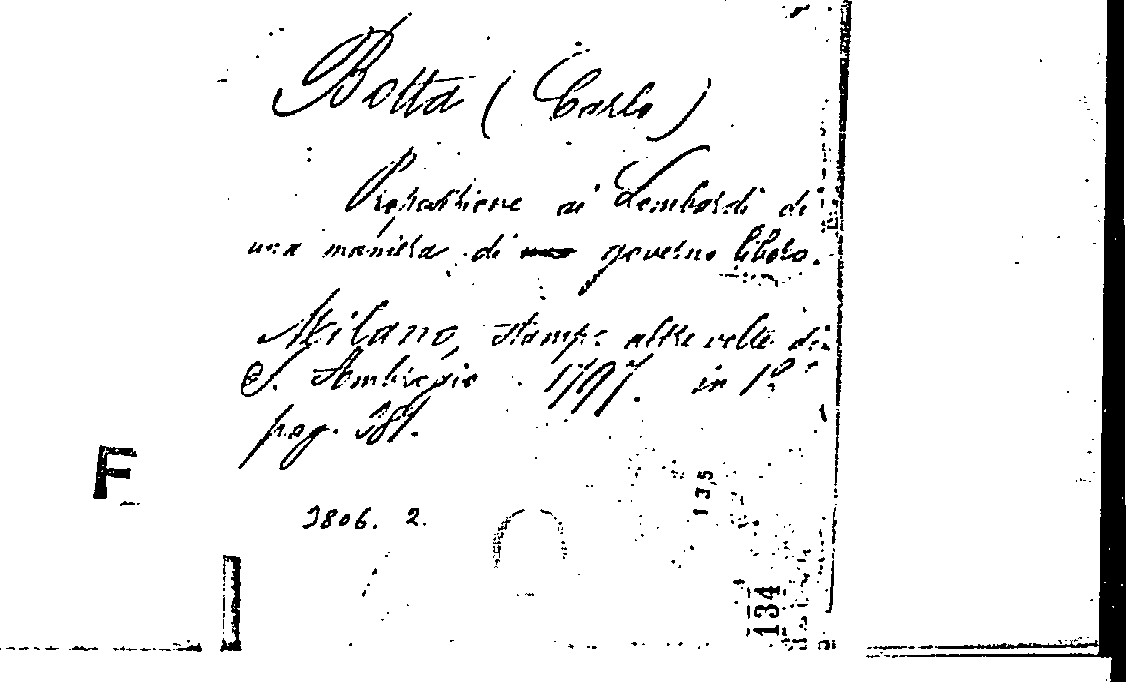 Botta (Carlo)
Proposizione ai Lombardi di
una maniera di governo libero.
Milano, stampe altre volte di
S. Ambrogio 1797. in
pag. 281.
F
2806. 2.
135
134